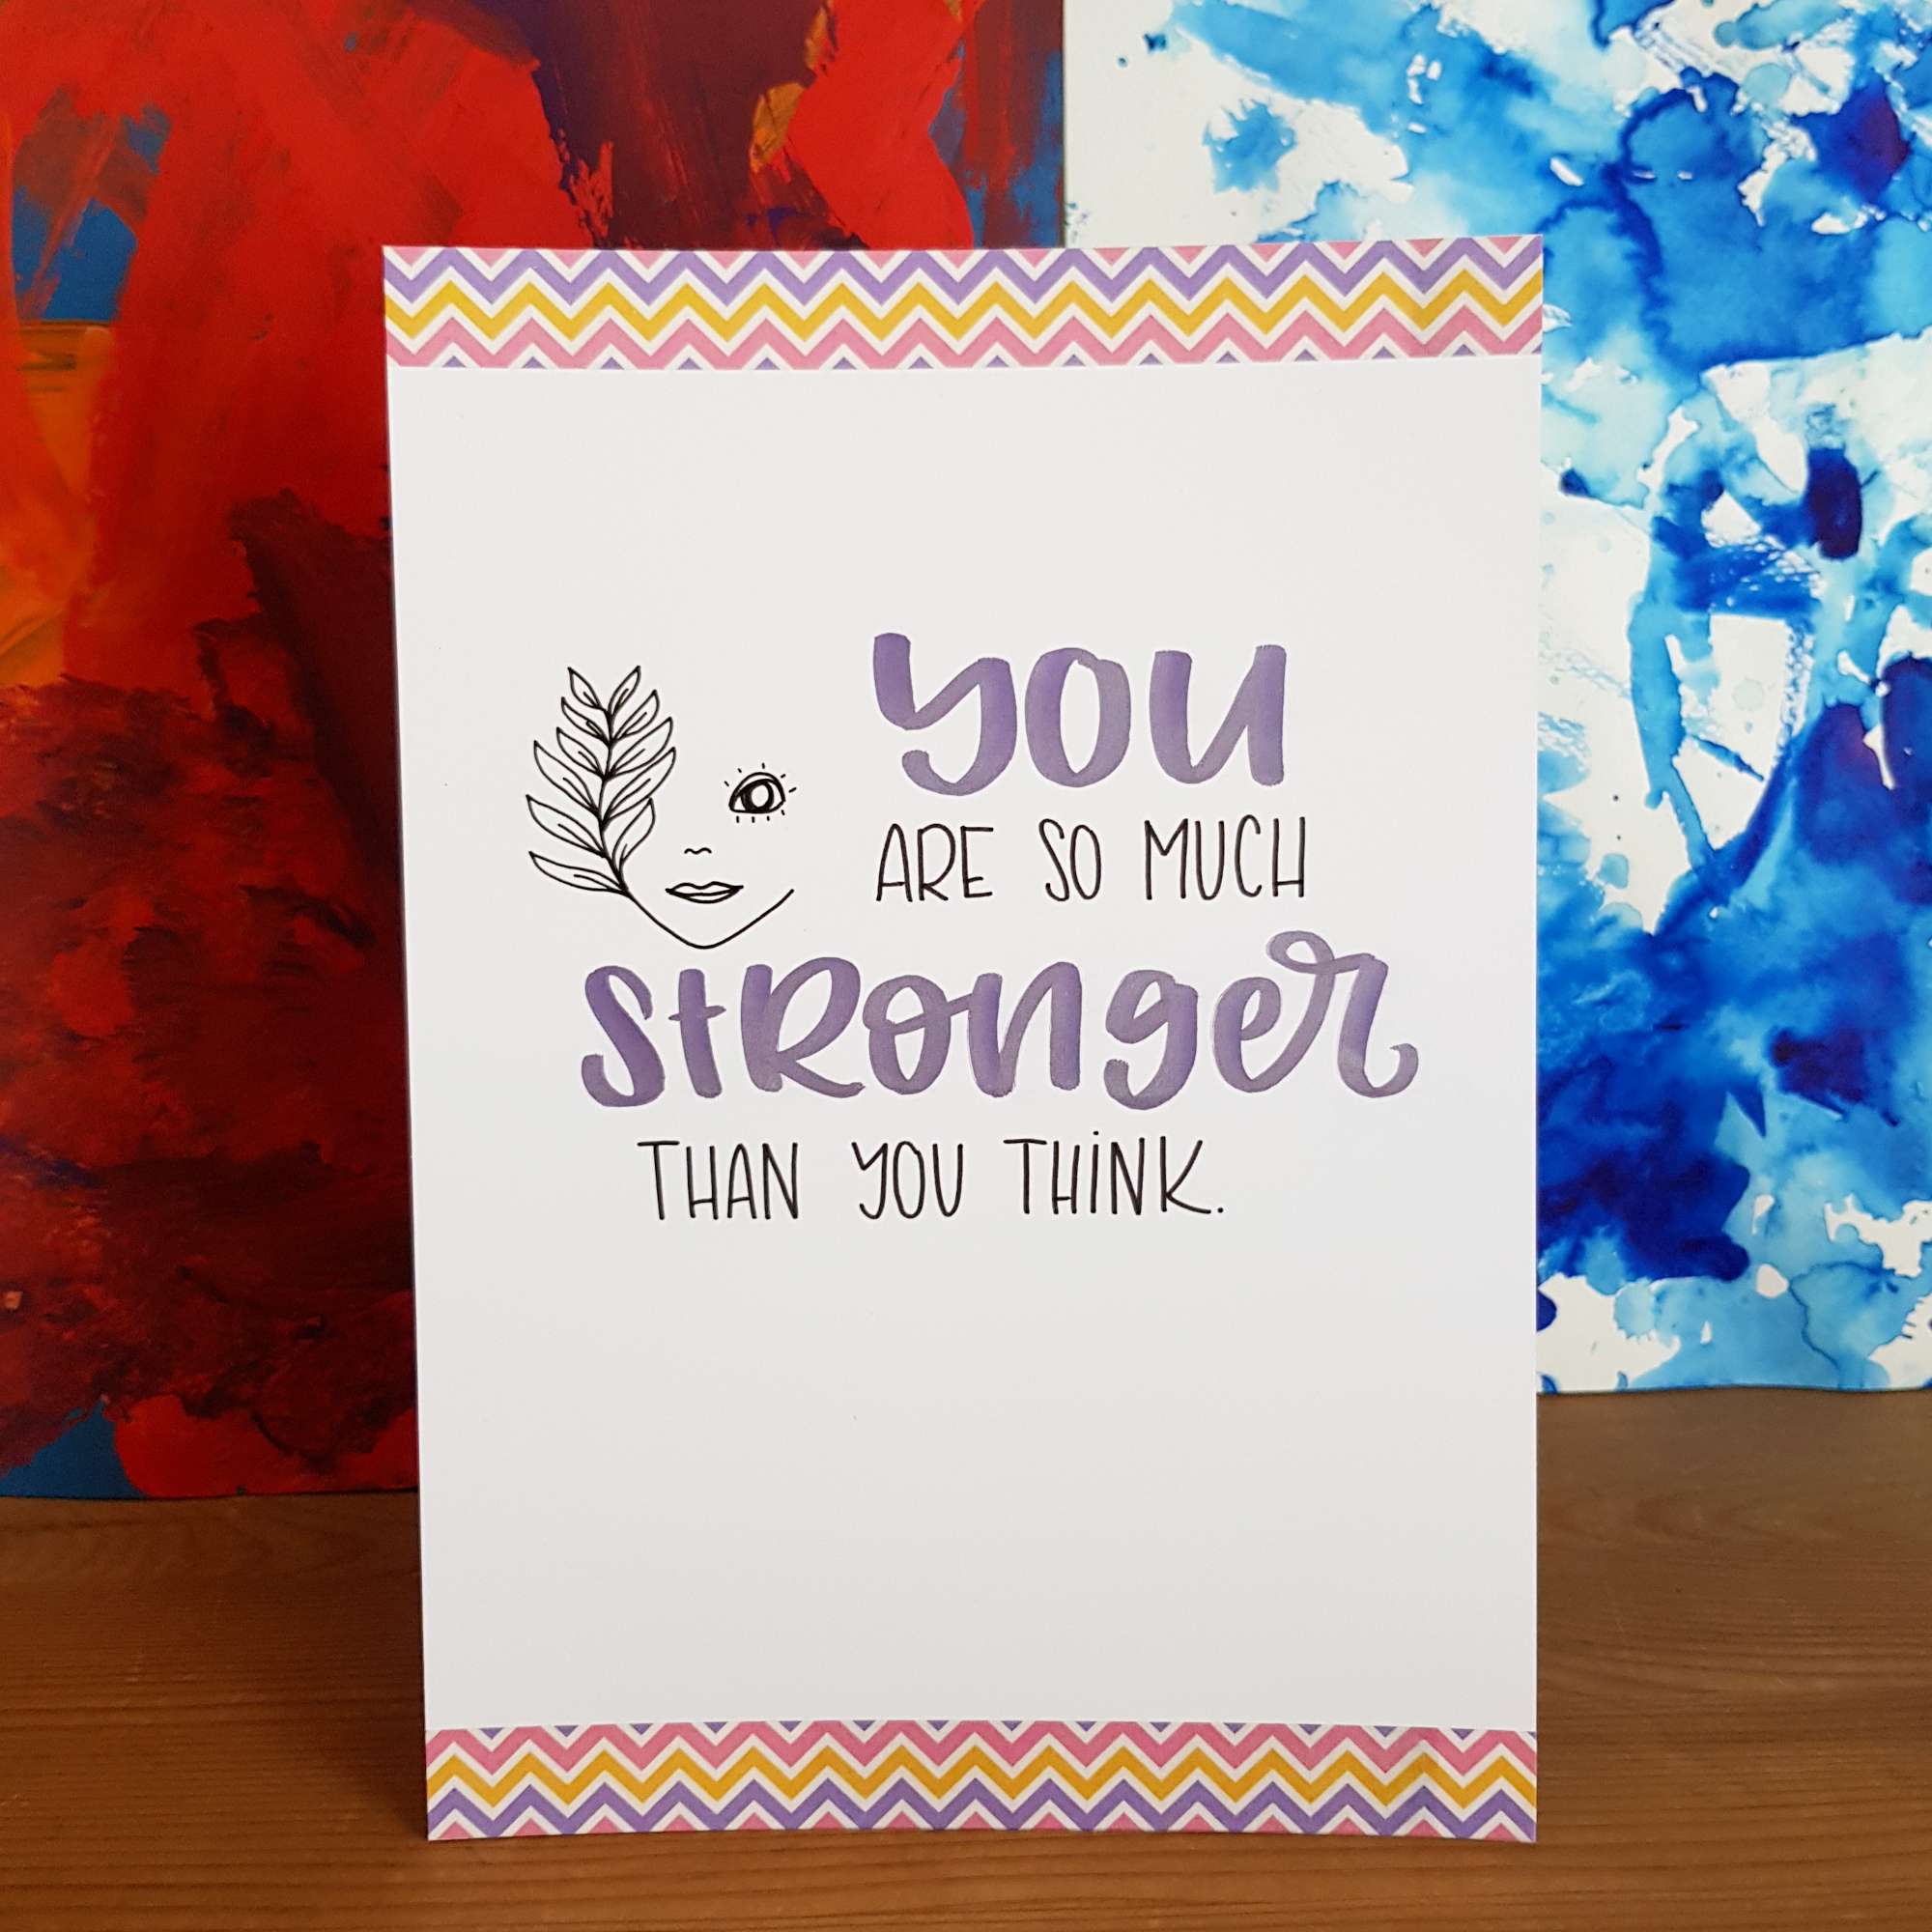 you
ARE SO MUCH
stRonger
THAN YOU THiNK.